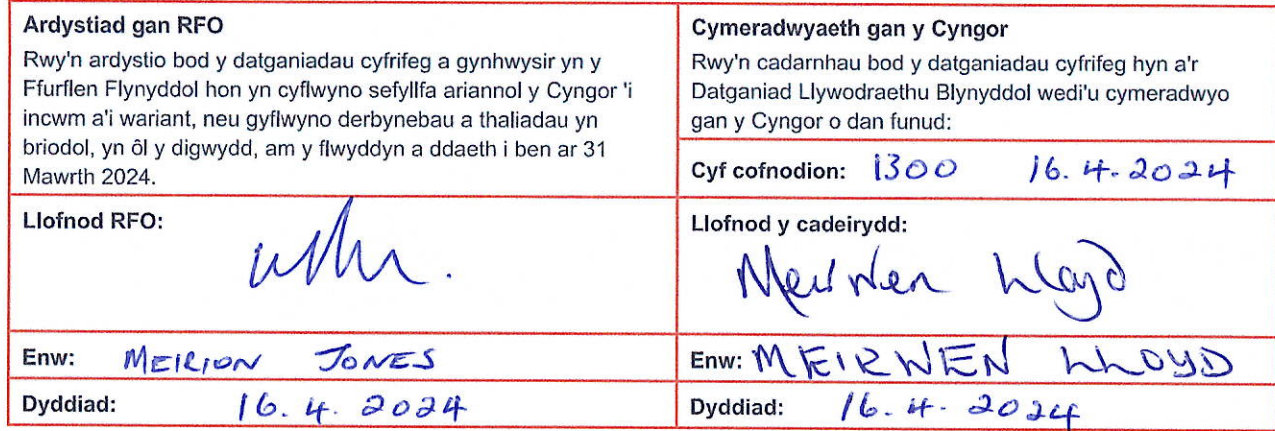 Ardystiad gan RFO
Rwy'n ardystio bod y datganiadau cyfrifeg a gynhwysir yn y
Ffurflen Flynyddol hon yn cyflwyno sefyllfa ariannol y Cyngor 'i
incwm a'i wariant, neu gyflwyno derbynebau a thaliadau yn
briodol, yn ôl y digwydd, am y flwyddyn a ddaeth i ben ar 31
Mawrth 2024.
Cymeradwyaeth gan y Cyngor
Rwy'n cadarnhau bod y datganiadau cyfrifeg hyn a'r
Datganiad Llywodraethu Blynyddol wedi'u cymeradwyo
gan y Cyngor o dan funud:
Cyf cofnodion: 1300 16.4.2024
Llofnod RFO:
Llofnod y cadeirydd:
Meirwen Lloyd
Enw: MEIRION JONES
Enw: MEIRWEN LLOYD
Dyddiad: 16.4.2024
Dyddiad: 16.4.2024